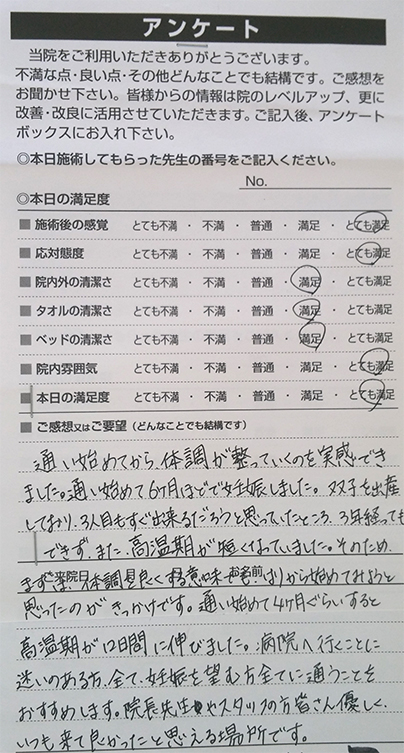 アンケート
当院をご利用いただきありがとうございます。
不満な点・良い点・その他どんなことでも結構です。ご感想を
お聞かせ下さい。皆様からの情報は院のレベルアップ、更に
改善・改良に活用させていただきます。ご記入後、アンケート
ボックスにお入れ下さい。
◎本日施術してもらった先生の番号をご記入ください。
No.
◎本日の満足度
■ 施術後の感覚 とても不満 ・ 不満 ・ 普通 ・ 満足 ・ とても満足
■ 応対態度 とても不満 ・ 不満 ・ 普通 ・ 満足 ・ とても満足
■ 院内外の清潔さ とても不満 ・ 不満 ・ 普通 ・ 満足 ・ とても満足
■ タオルの清潔さ とても不満 ・ 不満 ・ 普通 ・ 満足 ・ とても満足
■ ベッドの清潔さ とても不満 ・ 不満 ・ 普通 ・ 満足 ・ とても満足
■ 院内雰囲気 とても不満 ・ 不満 ・ 普通 ・ 満足 ・ とても満足
■ 本日の満足度 とても不満 ・ 不満 ・ 普通 ・ 満足 ・ とても満足
■ ご感想又はご要望（どんなことでも結構です）
通い始めてから、体調が整っていくのを実感でき
ました。通い始めて6ヶ月ほどで妊娠しました。双子を出産
しており、3人目もすぐ出来るだろうと思っていたところ、3年経っても
できず、また、高温期が短くなっていました。そのため、
まずは、体調を良くする意味 から始めてみようと
ご来院日 お名前
思ったのがきっかけです。通い始めて4ヶ月ぐらいすると
高温期が12日間に伸びました。病院へ行くことに
迷いのある方、全て、妊娠を望む方全てに通うことを
おすすめします。院長先生やスタッフの方皆さん優しく、
いつも来て良かったと思える場所です。